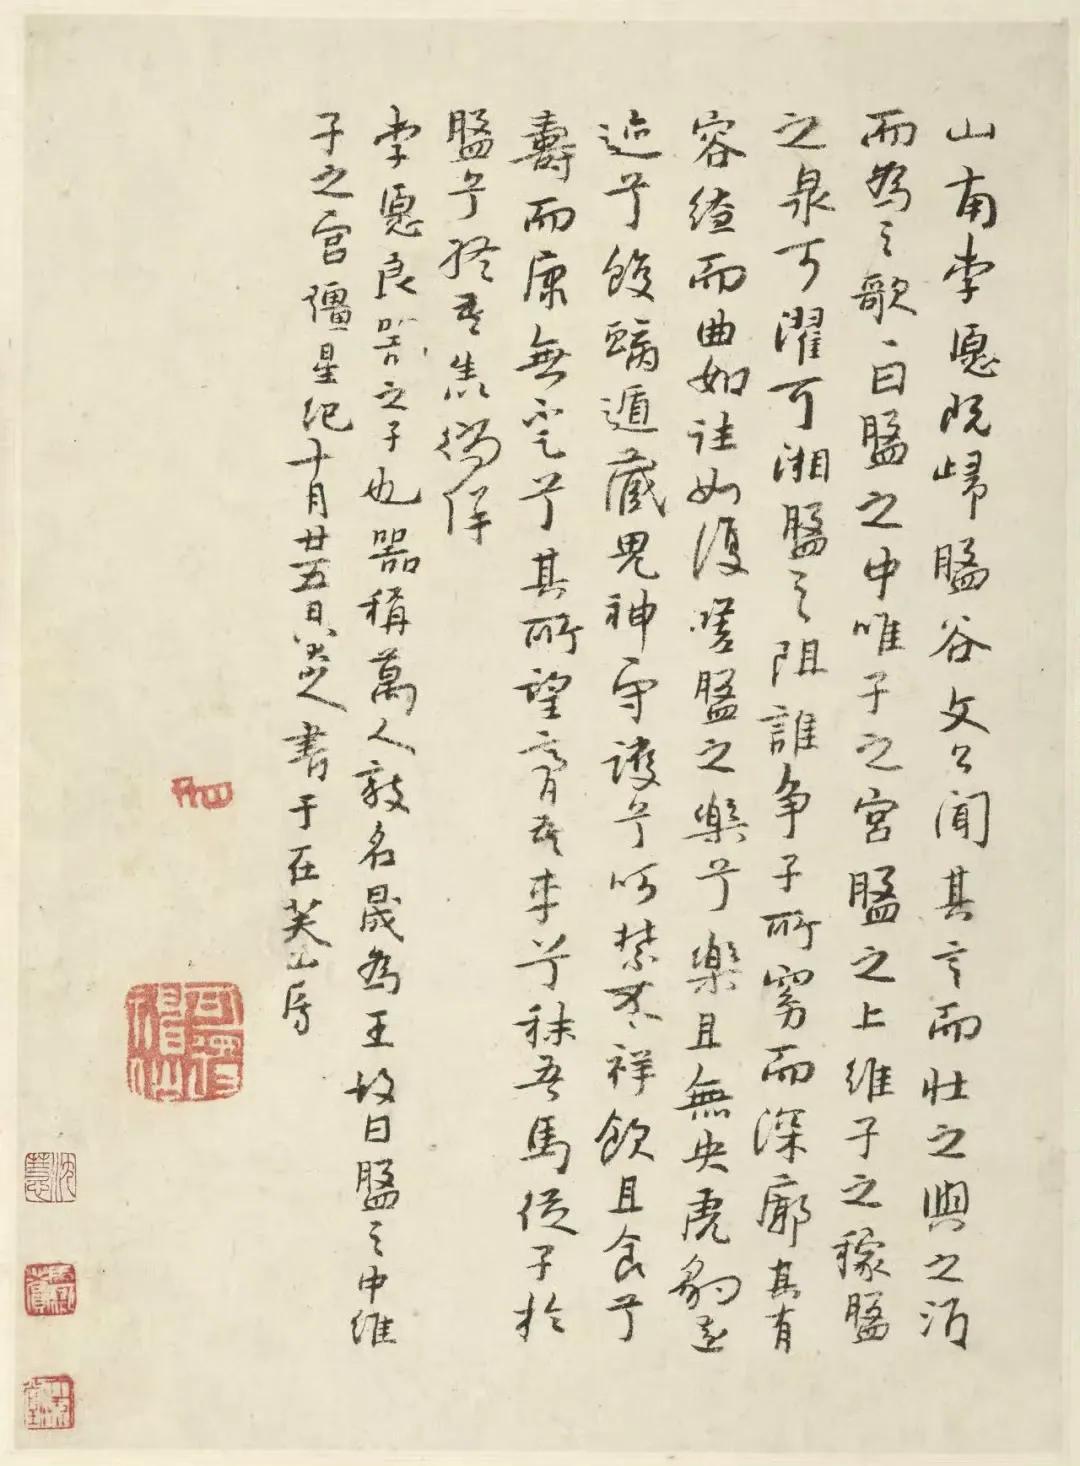 山南李愿既歸盤谷文公聞其言而壯之與之酒
而為之歌曰盤之中唯子之宮盤之上維子之稼盤
之泉可濯可湘盤之阻誰爭子所窈而深廓其有
容繚而曲如往如復嗟盤之樂兮樂且無央虎豹遠
迹兮蛟螭遁藏鬼神守護兮呵禁不祥飲且食兮
壽而康無不足兮其所望膏吾車兮秣吾馬從子於
盤兮終吾生徜徉
李愿良器之子也器稱萬人敵名晟為王故曰盤之中維
子之宮僵星紀十月廿五日八大山人書于在芙山房